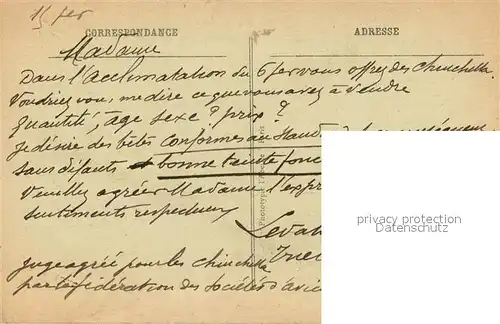 15 fer
CORRESPONDANCE
ADRESSE
Madame
Dans l'Acclimatation du 6 fer vous offrez des chinchilla
Voudriez vous me dire ce que vous avez à vendre
quantité, age sexe ? prix ?
Je désire des bêtes conformes au Standard
sans défauts et bonne teinte fonc
Veuillez agréer Madame l'expr
sentiments respectueux
Juge agréé pour les chinchilla
par la fédération des sociétés d'avic
privacy protection
Datenschutz